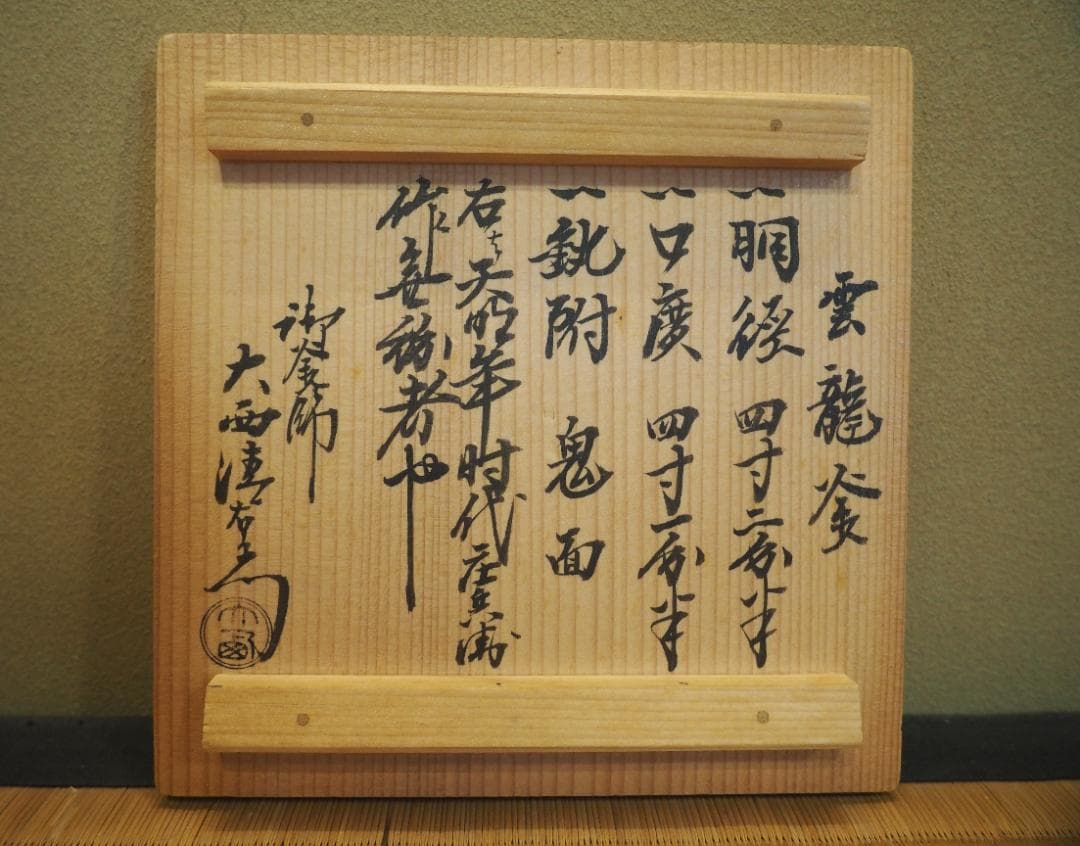 雲龍釜
一胴径 四寸二分半
一口度 四寸一分半
一釻附 鬼面
右ハ天明年時代庄兵衛
作無紛者也
御釜師
大西清右衛門